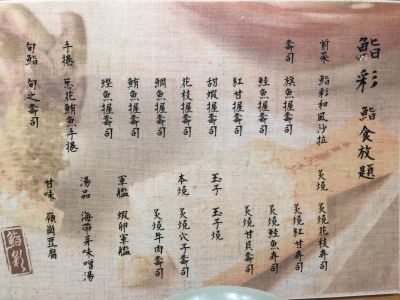 鮨彩 鮨食放題
前菜 鮨彩和風沙拉
壽司 旗魚握壽司
鮭魚握壽司
紅甘握壽司
甜蝦握壽司
花枝握壽司
鯛魚握壽司
鮪魚握壽司
鰹魚握壽司
手捲 葱花鮪魚手捲
旬鮨 旬之壽司
炙燒 炙燒花枝壽司
炙燒紅甘壽司
炙燒鮭魚壽司
炙燒甘貝壽司
玉子 玉子燒
本燒 炙燒穴子壽司
炙燒牛肉壽司
軍艦 蝦卵軍艦
湯品 海帶芽味噌湯
甘味 嶺岡豆腐
鮨彩